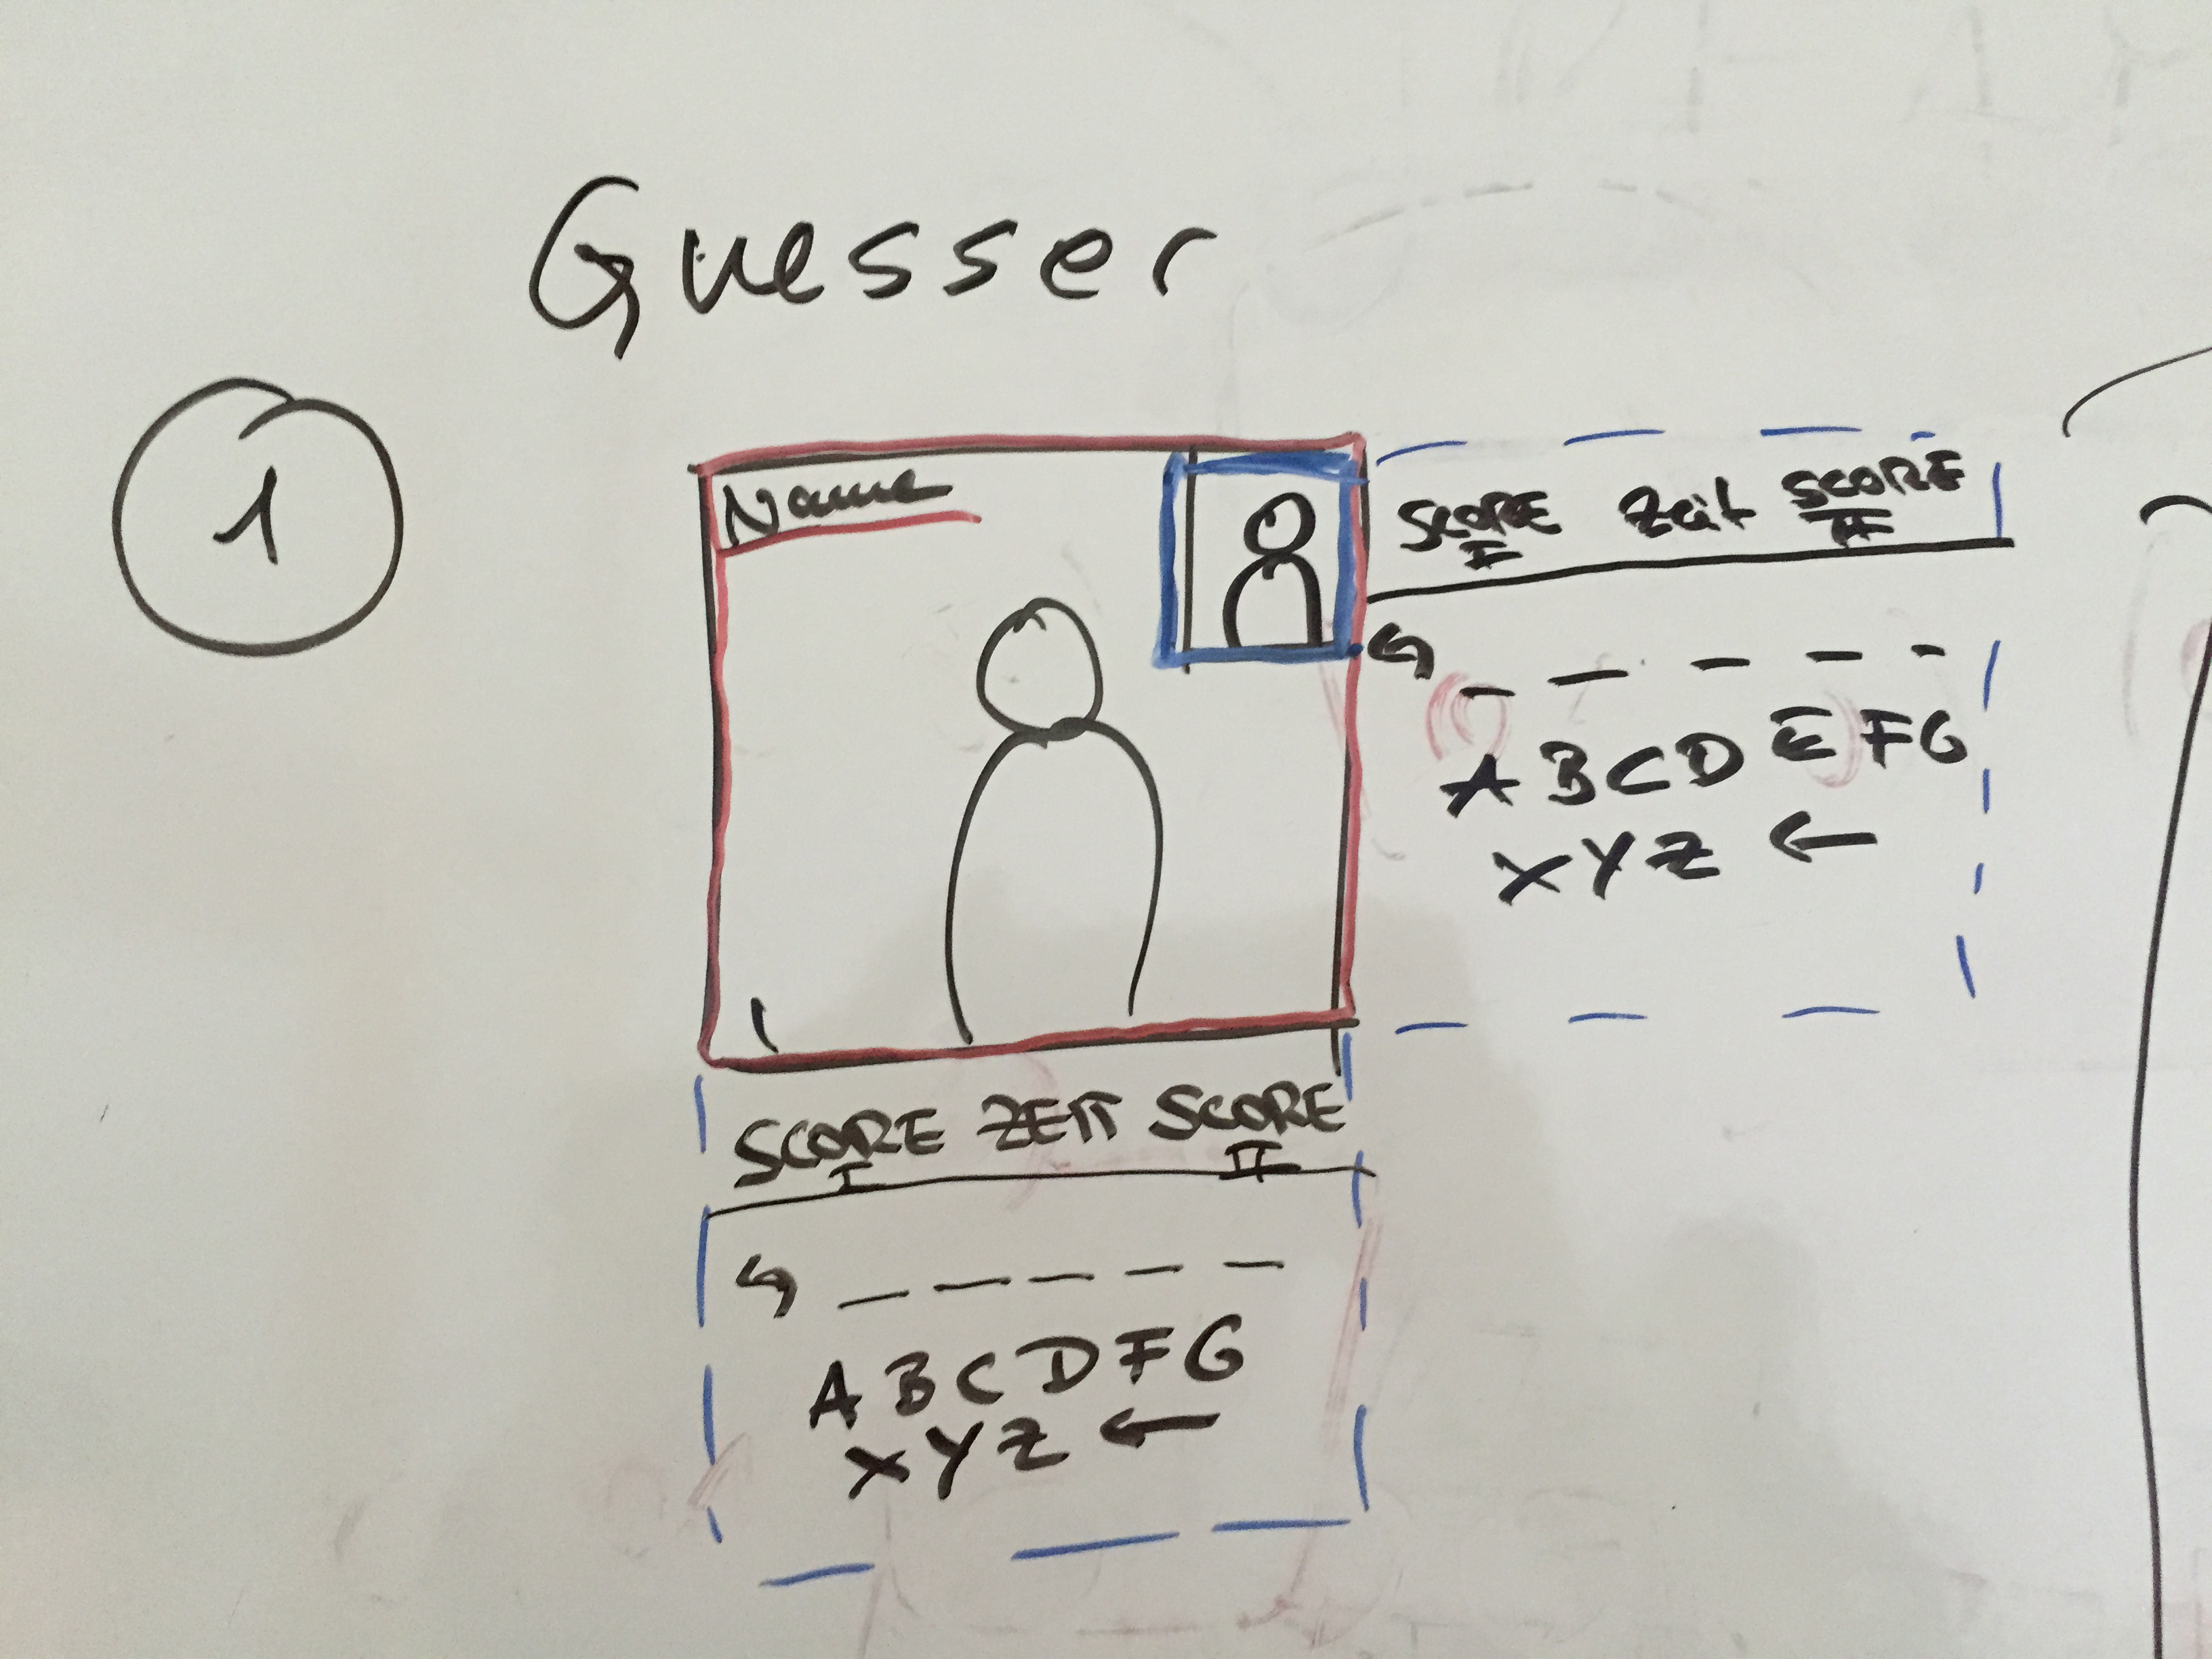 Guesser
1
Name
SCORE Zeit SCORE
I II
A B C D E F G
X Y Z ←
SCORE ZEIT SCORE
I II
A B C D F G
X Y Z ←